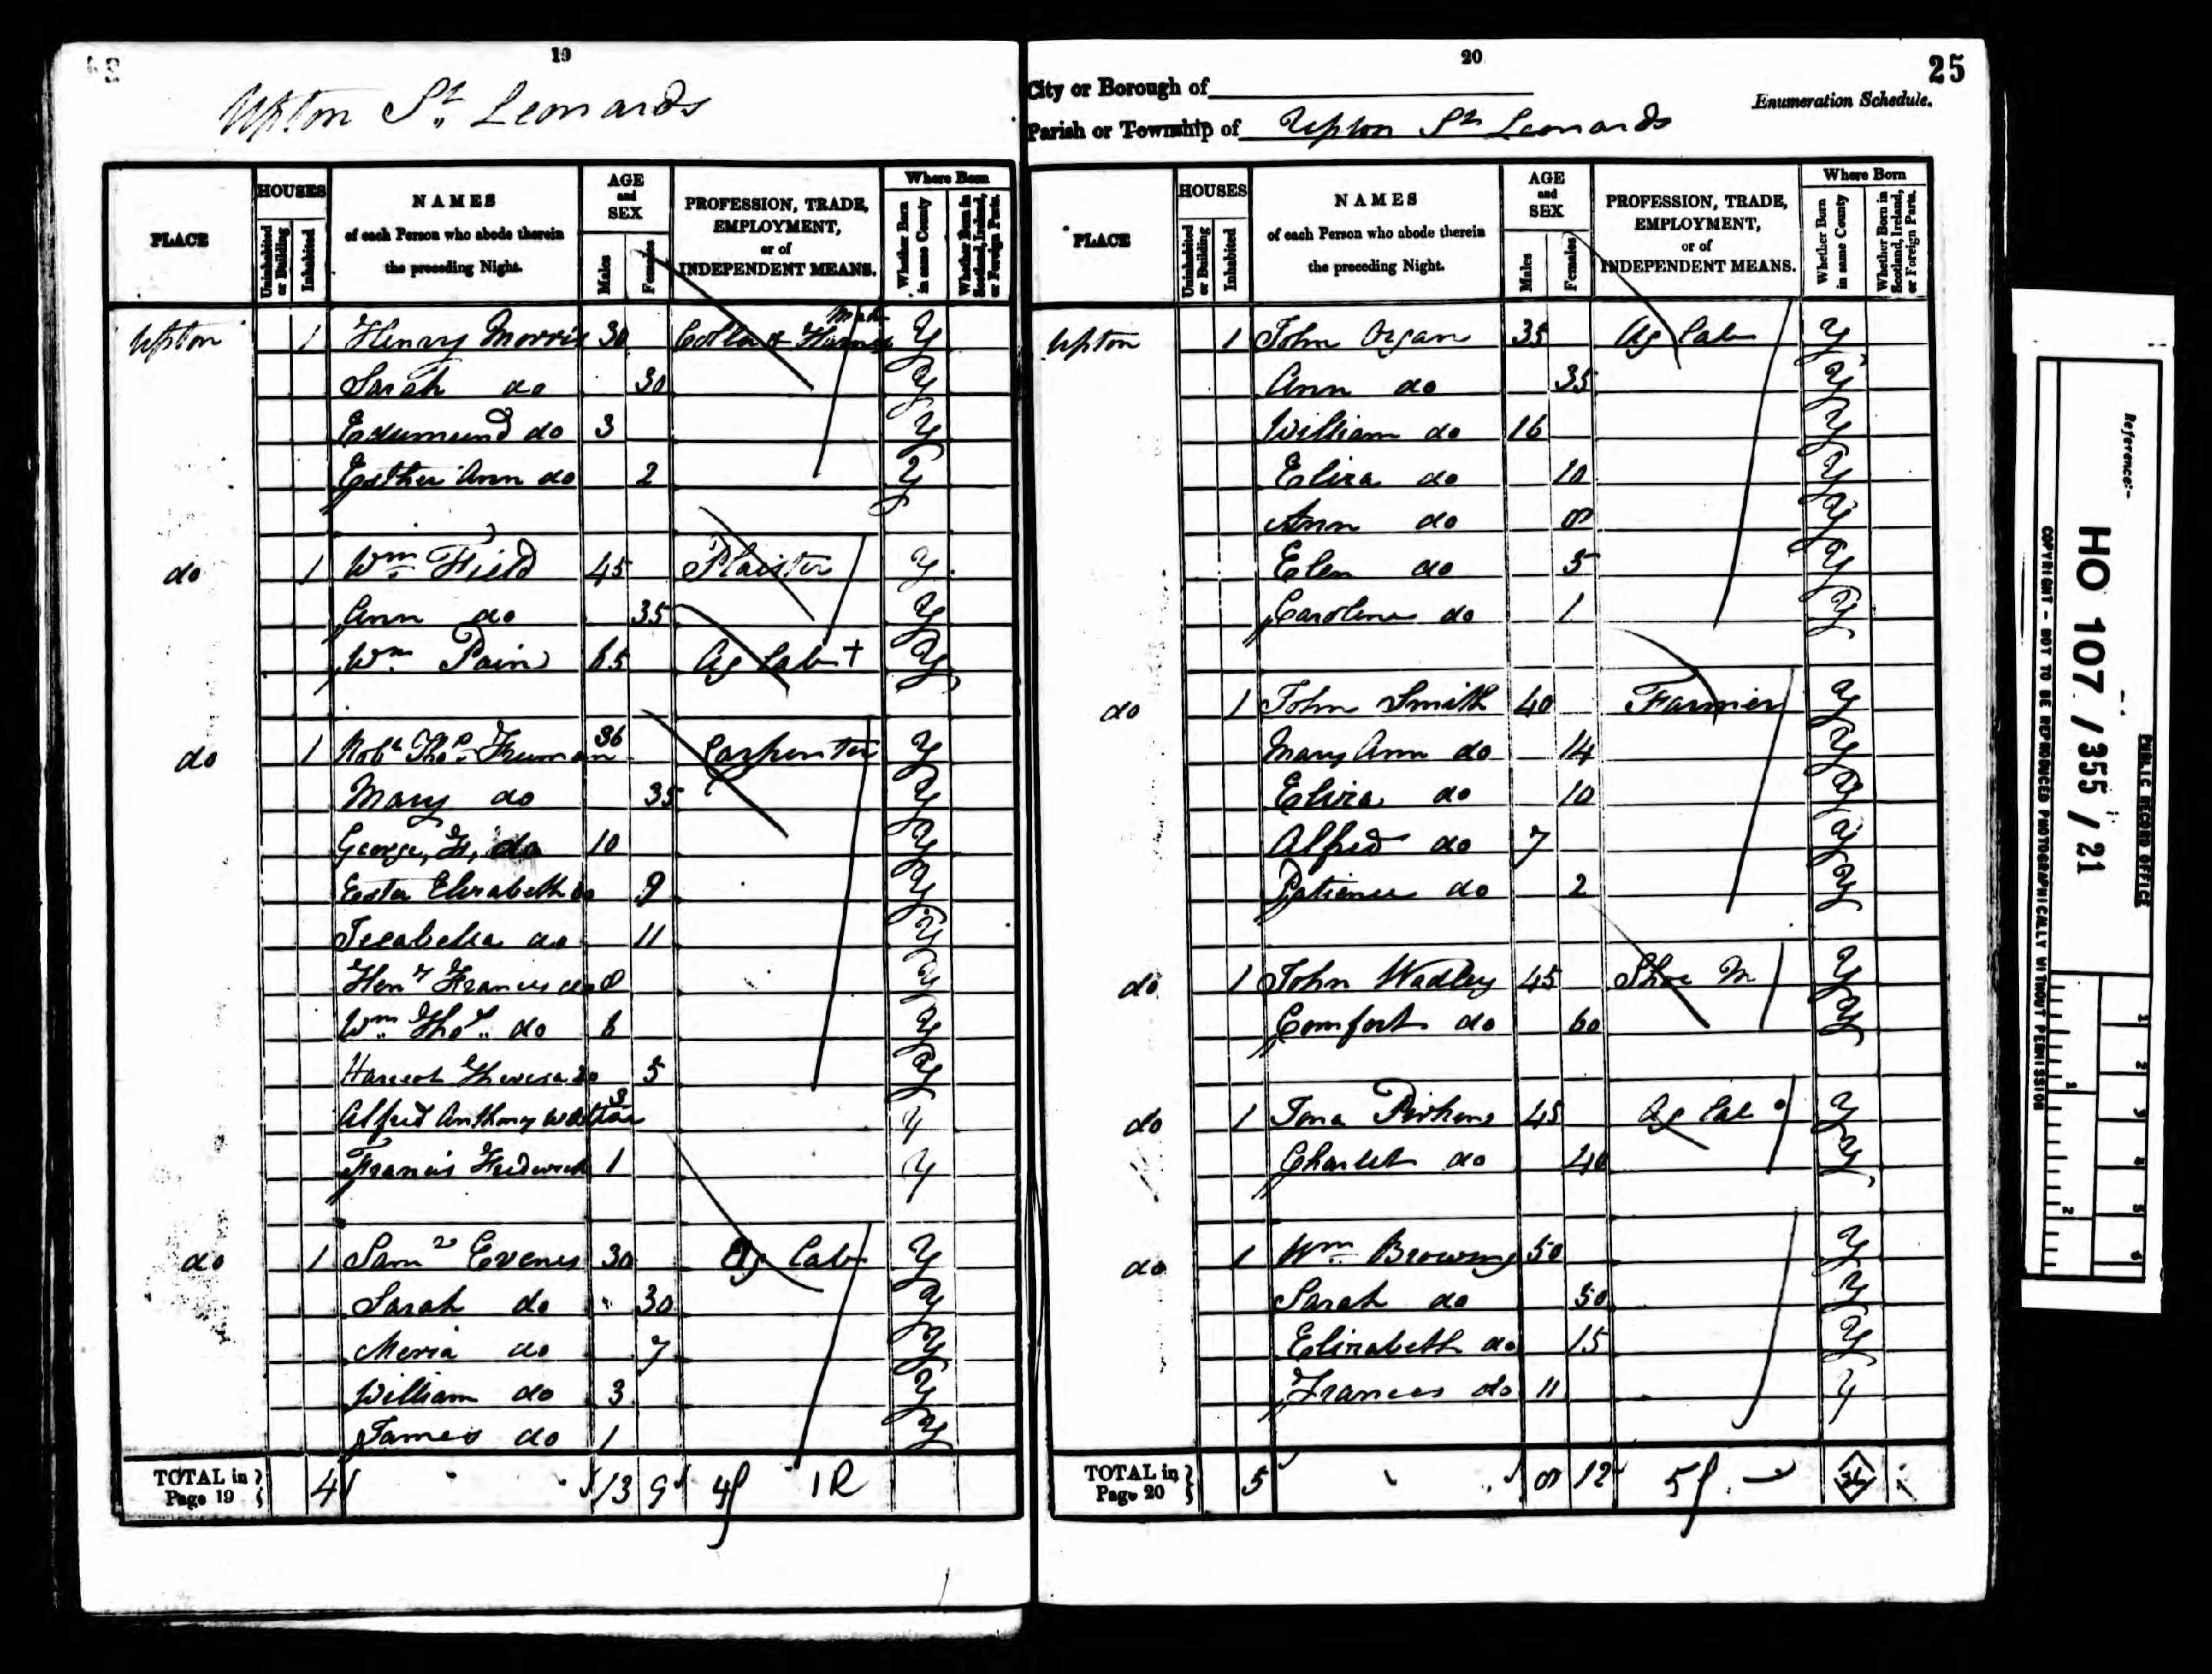 19
Upton St. Leonards
PLACE
HOUSES
Uninhabited or Building
Inhabited
NAMES
of each Person who abode therein
the preceding Night.
AGE
and
SEX
Males
Females
PROFESSION, TRADE,
EMPLOYMENT,
or of
INDEPENDENT MEANS.
Where Born
Whether Born in same County
Whether Born in Scotland, Ireland, or Foreign Parts.
Upton 1 Henry Morris 30 Collar & Harness Mak Y
Sarah do 30 Y
Edumund do 3 Y
Esther Ann do 2 Y
do 1 Wm Field 45 Plaister Y
Ann do 35 Y
Wm Pain 65 Ag Lab + Y
do 1 Robt Thos Freeman 36 Carpenter Y
Mary do 35 Y
George, F, do 10 Y
Ester Elizabeth do 9 Y
Isabella do 11 Y
Heny Francis do 8 Y
Wm Thos do 6 Y
Harreot Theresa do 5 Y
Alfred Anthony Walter 3 Y
Francis Frederick 1 Y
do 1 Saml Evenes 30 Ag Lab Y
Sarah do 30 Y
Meria do 7 Y
William do 3 Y
James do 1 Y
TOTAL in Page 19 4 13 9 4f 1R
20
25
City or Borough of
Enumeration Schedule.
Parish or Township of Upton St Leonards
PLACE
HOUSES
Uninhabited or Building
Inhabited
NAMES
of each Person who abode therein
the preceding Night.
AGE
and
SEX
Males
Females
PROFESSION, TRADE,
EMPLOYMENT,
or of
INDEPENDENT MEANS.
Where Born
Whether Born in same County
Whether Born in Scotland, Ireland, or Foreign Parts.
Upton 1 John Organ 35 Ag Lab Y
Ann do 35 Y
William do 16 Y
Eliza do 10 Y
Ann do 8 Y
Elen do 5 Y
Caroline do 1 Y
do 1 John Smith 40 Farmer Y
Mary Ann do 14 Y
Eliza do 10 Y
Alfred do 7 Y
Patience do 2 Y
do 1 John Wadley 45 Shoe M Y
Comfort do 60 Y
do 1 Perkens 45 Ag Lab Y
Charlet do 40 Y
do 1 Wm Browning 50 Y
Sarah do 50 Y
Elizabeth do 15 Y
Frances do 11 Y
TOTAL in Page 20 5 8 12 5f
Reference:-
HO 107 / 355 / 21
PUBLIC RECORD OFFICE
COPYRIGHT - NOT TO BE REPRODUCED PHOTOGRAPHICALLY WITHOUT PERMISSION
1
2
1
2
3
4
5
6